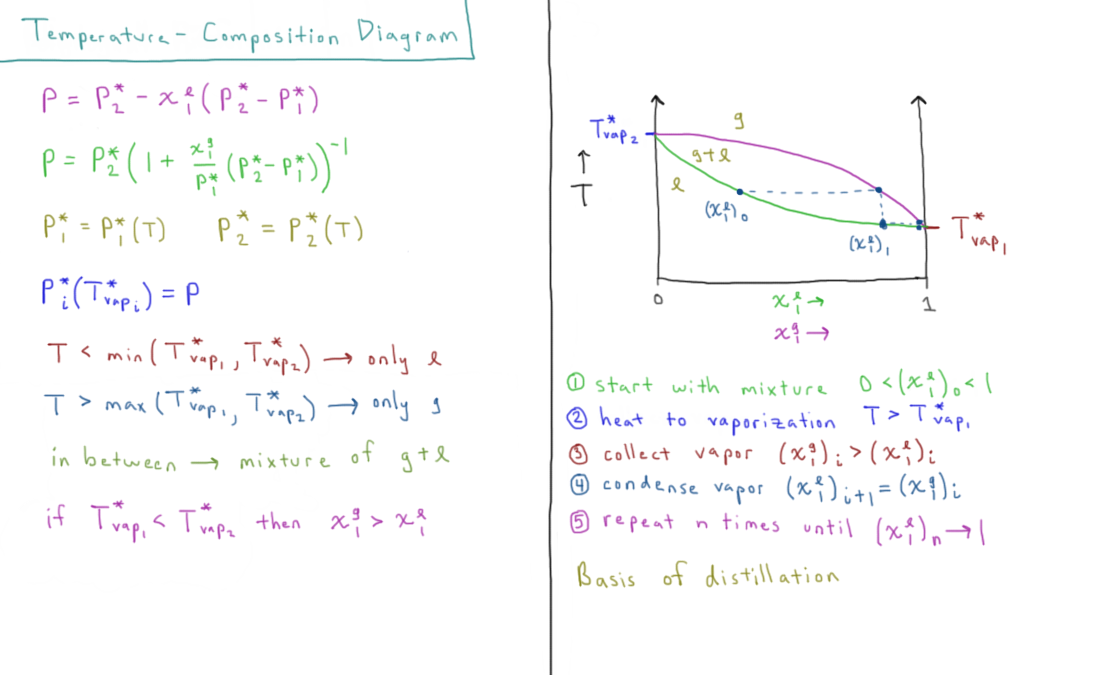 Temperature - Composition Diagram
P = P₂* - x₁ˡ (P₂* - P₁*)
P = P₂* (1 + x₁ᵍ/P₁* (P₂* - P₁*))⁻¹
P₁* = P₁*(T) P₂* = P₂*(T)
Pᵢ*(T*vapᵢ) = P
T < min(T*vap₁, T*vap₂) → only l
T > max(T*vap₁, T*vap₂) → only g
in between → mixture of g+l
if T*vap₁ < T*vap₂ then x₁ᵍ > x₁ˡ
T*vap₂
g
g+l
↑
T
l
(x₁ˡ)₀
(x₁ˡ)₁
T*vap₁
0
1
x₁ˡ →
x₁ᵍ →
① start with mixture 0 < (x₁ˡ)₀ < 1
② heat to vaporization T > T*vap₁
③ collect vapor (x₁ᵍ)ᵢ > (x₁ˡ)ᵢ
④ condense vapor (x₁ˡ)ᵢ₊₁ = (x₁ᵍ)ᵢ
⑤ repeat n times until (x₁ˡ)ₙ → 1
Basis of distillation